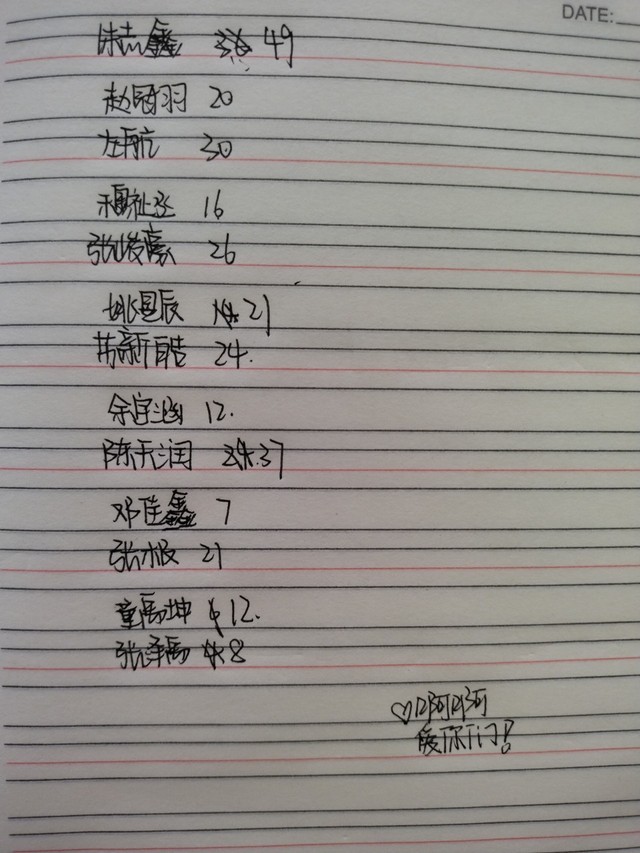 DATE:
朱志鑫 49
赵冠羽 20
左航 30
穆祉丞 16
张峻豪 26
姚昱辰 21
苏新皓 24.
余宇涵 12.
陈天润 37
邓佳鑫 7
张极 21
童禹坤 12.
张泽禹 8
♡啊啊
爱你们!